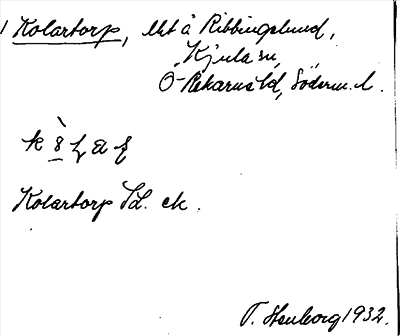 1 Kolartorp, lht å Ribbingelund,
Kjula sn,
Ö-Rekarne hd, Söderm. l.
Kolartorp Jd. ek.
T. Stenborg 1932.